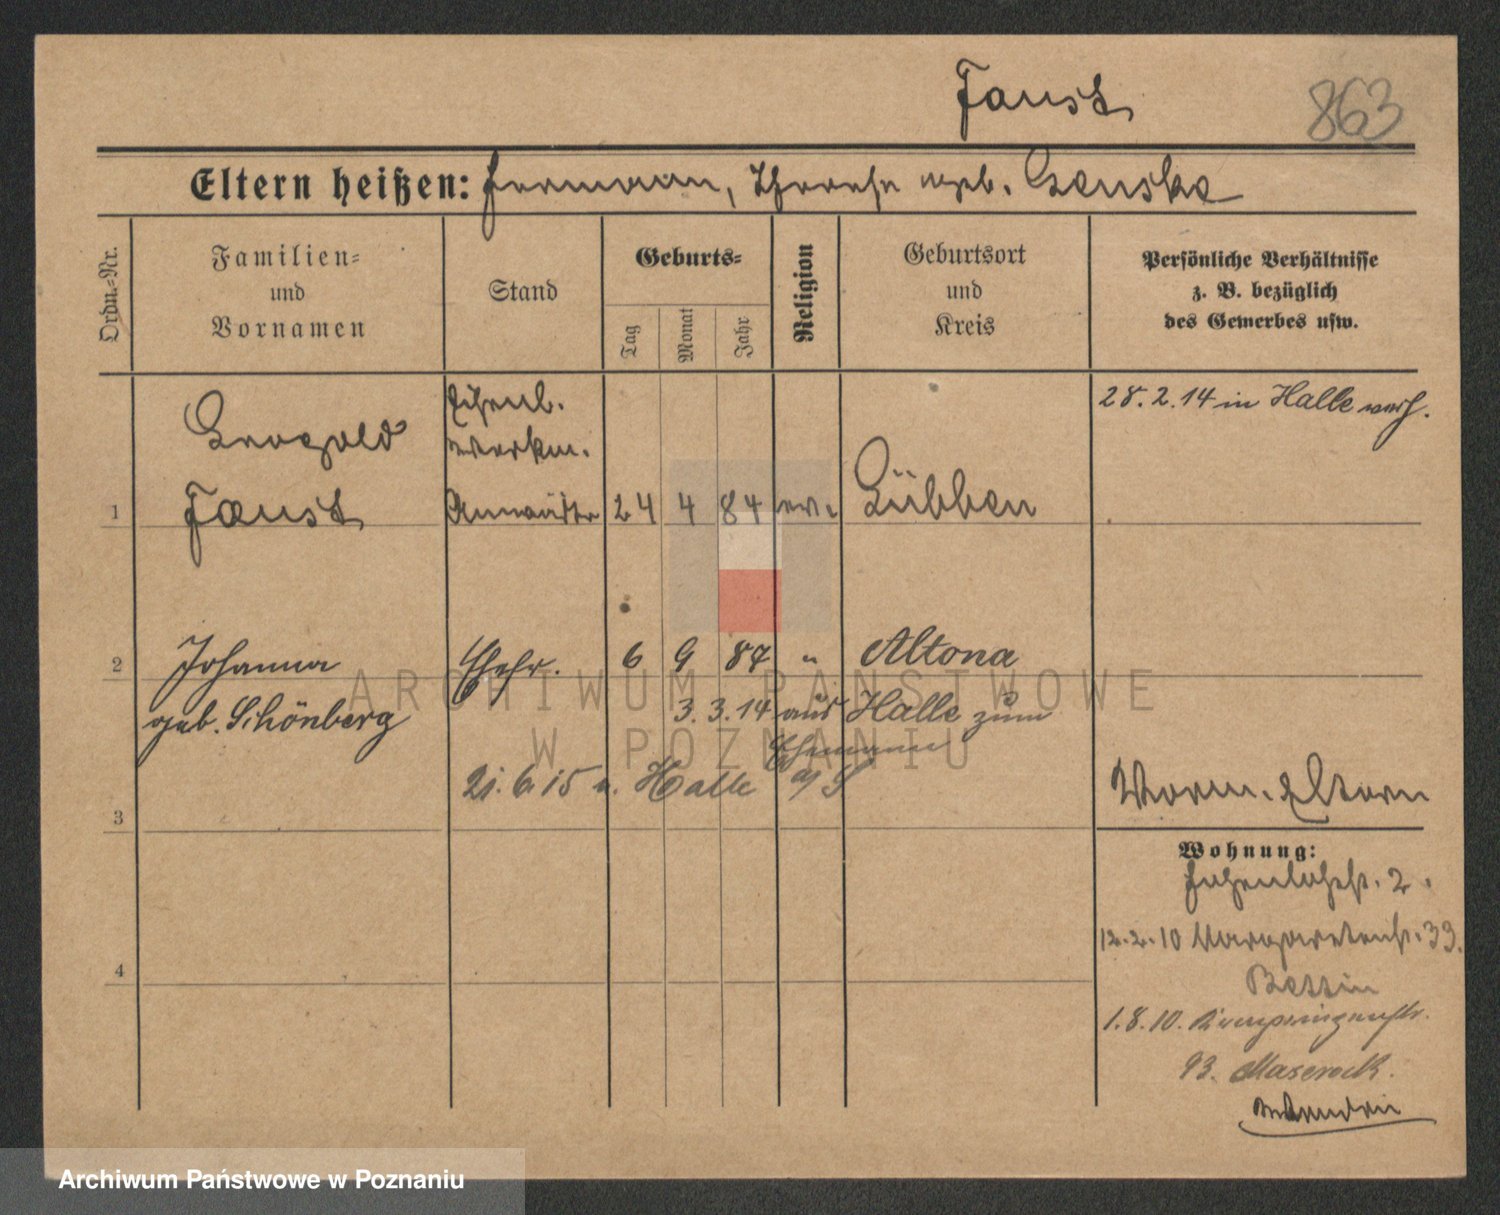 Faust
863
Eltern heißen: Hermann, Therese geb. Genske
Ordn.-Nr.
Familien-
und
Vornamen
Stand
Geburts-
Tag
Monat
Jahr
Religion
Geburtsort
und
Kreis
Persönliche Verhältnisse
z. B. bezüglich
des Gewerbes usw.
28.2.14 in Halle verh.
Leopold
Eisenb.
Werkm.
1 Faust Anwärter 24 4 84 ev. Lübben
2 Johanna Ehefr. 6 9 87 " Altona
geb. Schönberg 3.3.14 aus Halle zum
Ehemann
21.6.15 n. Halle a/S
3
Worm. Eltern
Wohnung:
Hohenlohestr. 2.
12.2.10 Margaretenstr. 33.
Bettin
4
1.8.10. Kronprinzenstr.
93.
ARCHIWUM PAŃSTWOWE
W POZNANIU
Archiwum Państwowe w Poznaniu